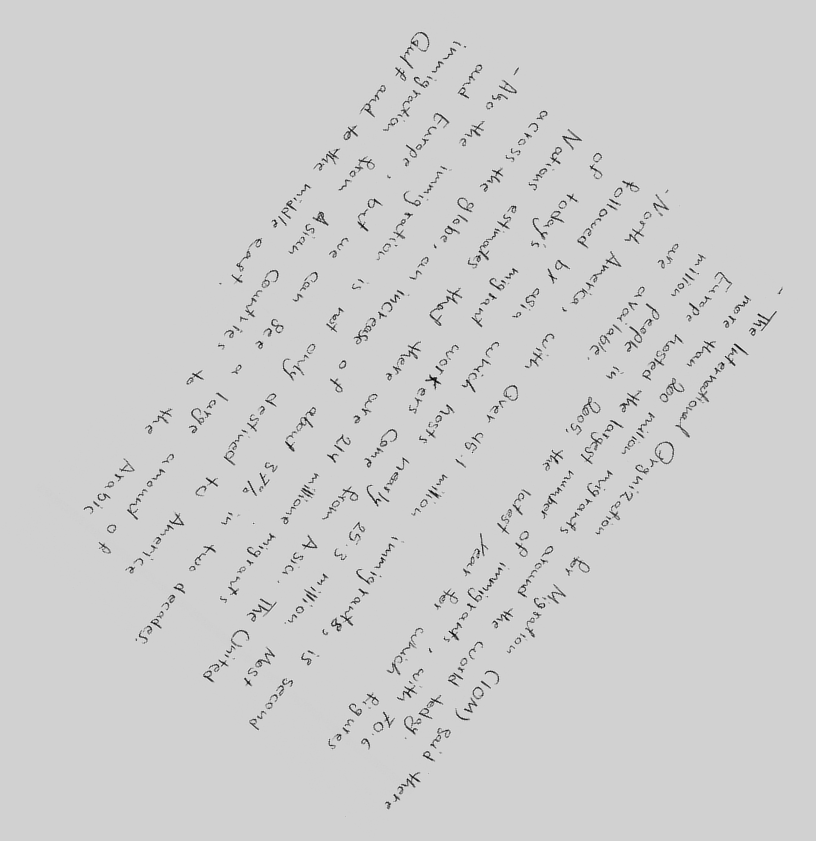 - The International Orgnization for Migration (IOM) said there
more than 200 million migrants around the world today.
Europe hosted the largest number of immigrants, with 70.6
million people in 2005, the latest year for which figures
are available.
- North America, with over 45.1 million immigrants, is second
followed by asia which hosts nearly 25.3 million. Most
of today's migrant workers come from Asia. The United
Nations estimates that there are 214 millione migrants
across the globe, an increase of about 37% in two decades.
- Also the immigration is not only destined to America
and Europe, but we can see a large amound of
immigration from Asian Countries to the Arabic
Gulf and to the middle east.